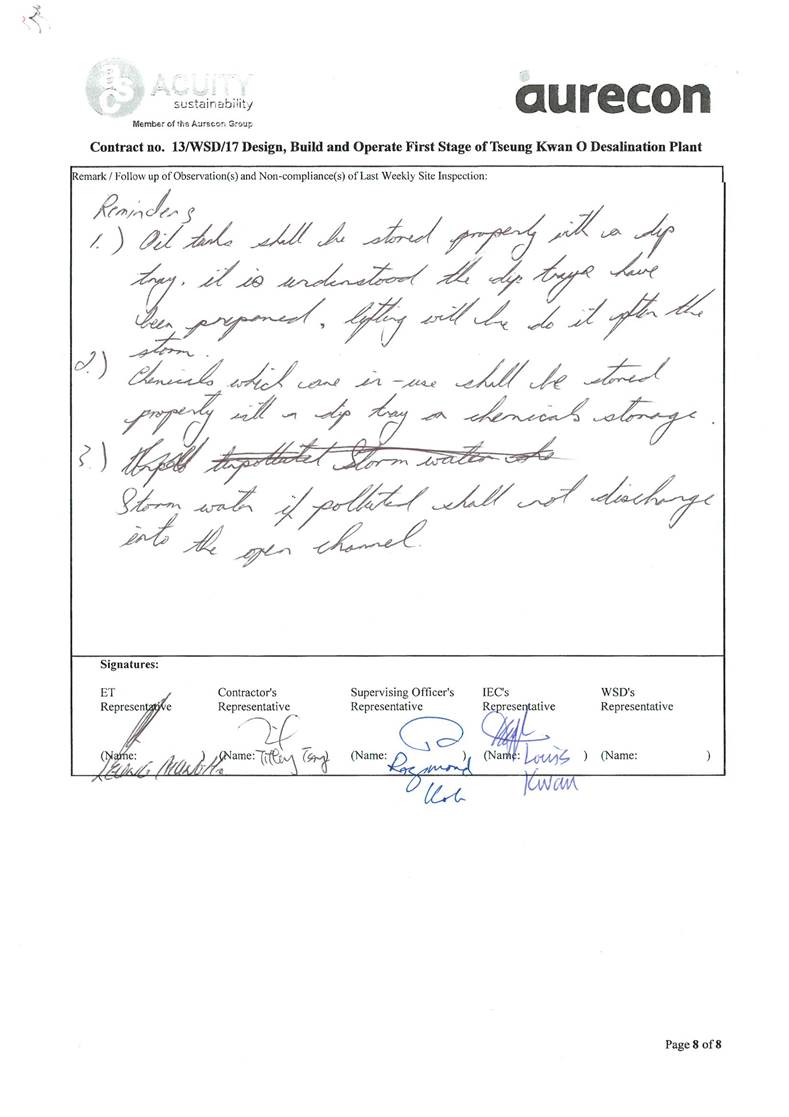 ACUITY
sustainability
Member of the Aurecon Group
aurecon
Contract no. 13/WSD/17 Design, Build and Operate First Stage of Tseung Kwan O Desalination Plant
Remark / Follow up of Observation(s) and Non-compliance(s) of Last Weekly Site Inspection:
Reminders
1.) Oil tanks shall be stored properly with a dip
tray. it is understood the dip trays have
been prepared, lifting will be do it after the
storm.
2.) Chemicals which are in-use shall be stored
properly with a dip tray or chemicals storage.
3.) Storm water
Storm water if polluted shall not discharge
into the open channel.
Signatures:
ET Representative
Contractor's Representative
Supervising Officer's Representative
IEC's Representative
WSD's Representative
(Name: )
(Name: )
(Name: Raymond )
(Name: Louis Kwan )
(Name: )
Page 8 of 8